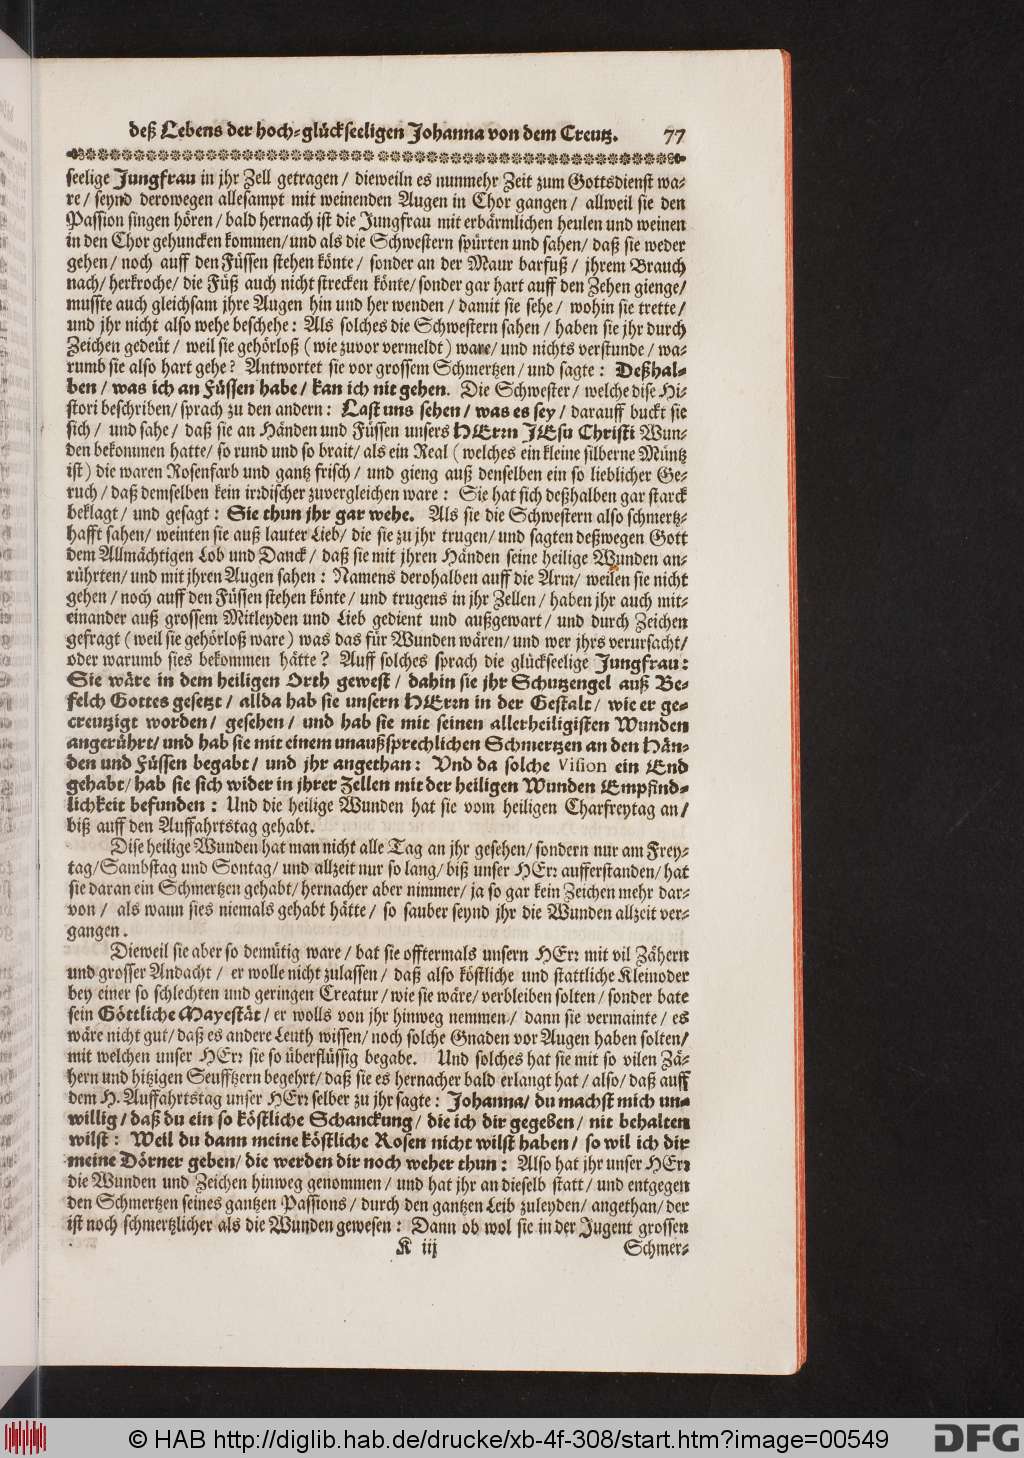 deß Lebens der hoch-glückseeligen Johanna von dem Creutz. 77
seelige Jungfrau in jhr Zell getragen / dieweiln es nunmehr Zeit zum Gottsdienst wa-
re / seynd derowegen allesampt mit weinenden Augen in Chor gangen / allweil sie den
Passion singen hören / bald hernach ist die Jungfrau mit erbärmlichen heulen und weinen
in den Chor gehuncken kommen/und als die Schwestern spürten und sahen/ daß sie weder
gehen / noch auff den Füssen stehen könte / sonder an der Maur barfuß / jhrem Brauch
nach/ herkroche/ die Füß auch nicht strecken könte/ sonder gar hart auff den Zehen gienge/
musste auch gleichsam jhre Augen hin und her wenden / damit sie sehe / wohin sie trette/
und jhr nicht also wehe beschehe: Als solches die Schwestern sahen / haben sie jhr durch
Zeichen gedeüt / weil sie gehörloß ( wie zuvor vermeldt ) ware/ und nichts verstunde / wa-
rumb sie also hart gehe? Antwortet sie vor grossem Schmertzen / und sagte: Deßhal-
ben / was ich an Füssen habe / kan ich nit gehen. Die Schwester / welche dise Hi-
stori beschriben/ sprach zu den andern: Last uns sehen / was es sey / darauff buckt sie
sich / und sahe / daß sie an Händen und Füssen unsers HErꝛn JEsu Christi Wun-
den bekommen hatte/ so rund und so brait/ als ein Real ( welches ein kleine silberne Müntz
ist) die waren Rosenfarb und gantz frisch / und gieng auß denselben ein so lieblicher Ge-
ruch / daß demselben kein irꝛdischer zuvergleichen ware: Sie hat sich deßhalben gar starck
beklagt / und gesagt: Sie thun jhr gar wehe. Als sie die Schwestern also schmertz-
hafft sahen/ weinten sie auß lauter Lieb/ die sie zu jhr trugen/ und sagten deßwegen Gott
dem Allmächtigen Lob und Danck / daß sie mit jhren Händen seine heilige Wunden an-
rührten/ und mit jhren Augen sahen: Namens derohalben auff die Arm/ weilen sie nicht
gehen / noch auff den Füssen stehen könte / und trugens in jhr Zellen / haben jhr auch mit-
einander auß grossem Mitleyden und Lieb gedient und außgewart / und durch Zeichen
gefragt ( weil sie gehörloß ware ) was das für Wunden wären/ und wer jhrs verursacht/
oder warumb sies bekommen hätte? Auff solches sprach die glückseelige Jungfrau:
Sie wäre in dem heiligen Orth gewest / dahin sie jhr Schutzengel auß Be-
felch Gottes gesetzt / allda hab sie unsern HErꝛn in der Gestalt / wie er ge-
creutzigt worden / gesehen / und hab sie mit seinen allerheiligisten Wunden
angerührt/ und hab sie mit einem unaußsprechlichen Schmertzen an den Hän-
den und Füssen begabt / und jhr angethan: Und da solche Vision ein End
gehabt/ hab sie sich wider in jhrer Zellen mit der heiligen Wunden Empfind-
lichkeit befunden: Und die heilige Wunden hat sie vom heiligen Charfreytag an /
biß auff den Auffahrtstag gehabt.
Dise heilige Wunden hat man nicht alle Tag an jhr gesehen/ sondern nur am Frey-
tag/ Sambstag und Sontag/ und allzeit nur so lang/ biß unser HErꝛ aufferstanden/ hat
sie daran ein Schmertzen gehabt/ hernacher aber nimmer/ ja so gar kein Zeichen mehr dar-
von / als wann sies niemals gehabt hätte / so sauber seynd jhr die Wunden allzeit ver-
gangen.
Dieweil sie aber so demütig ware / bat sie offtermals unsern HErꝛ mit vil Zähern
und grosser Andacht / er wolle nicht zulassen / daß also köstliche und stattliche Kleinoder
bey einer so schlechten und geringen Creatur / wie sie wäre/ verbleiben solten / sonder bate
sein Göttliche Mayestät / er wolls von jhr hinweg nemmen / dann sie vermainte / es
wäre nicht gut/ daß es andere Leuth wissen/ noch solche Gnaden vor Augen haben solten/
mit welchen unser HErꝛ sie so überflüssig begabe. Und solches hat sie mit so vilen Zä-
hern und hitzigen Seufftzern begehrt/ daß sie es hernacher bald erlangt hat / also / daß auff
dem H. Auffahrtstag unser HErꝛ selber zu jhr sagte: Johanna/ du machst mich un-
willig / daß du ein so köstliche Schanckung / die ich dir gegeben / nit behalten
wilst: Weil du dann meine köstliche Rosen nicht wilst haben / so wil ich dir
meine Dörner geben/ die werden dir noch weher thun: Also hat jhr unser HErꝛ
die Wunden und Zeichen hinweg genommen / und hat jhr an dieselb statt / und entgegen
den Schmertzen seines gantzen Passions / durch den gantzen Leib zuleyden/ angethan/ der
ist noch schmertzlicher als die Wunden gewesen: Dann ob wol sie in der Jugent grossen
K iij Schmer-
© HAB http://diglib.hab.de/drucke/xb-4f-308/start.htm?image=00549 DFG